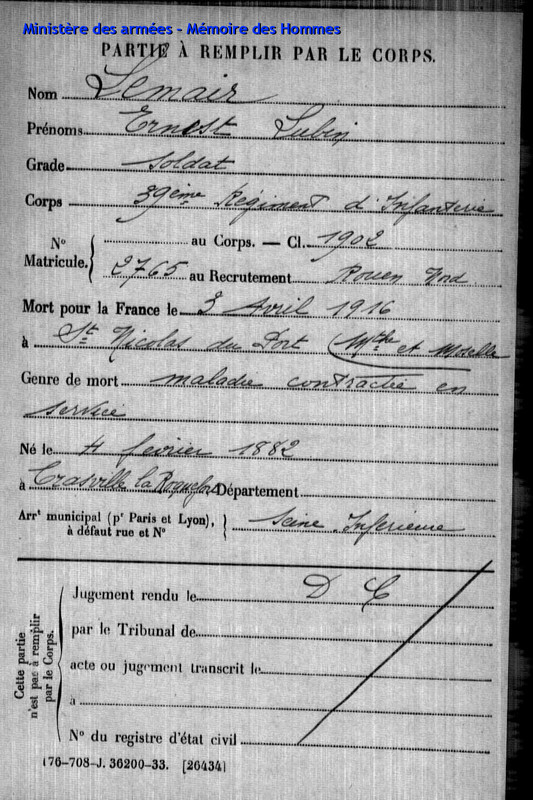 Ministère des armées - Mémoire des Hommes
PARTIE À REMPLIR PAR LE CORPS.
Nom Lemair
Prénoms Ernest Lubin
Grade soldat
Corps 39ème Régiment d'Infanterie
N° Matricule. { au Corps. — Cl. 1902
2765 au Recrutement Rouen Nord
Mort pour la France le 3 Avril 1916
à St Nicolas du Port (Mthe et Moselle
Genre de mort maladie contractée en
service
Né le 4 fevrier 1882
à Crasville la Roquefort Département
Arrt municipal (pr Paris et Lyon), à défaut rue et N° } Seine Inferieure
Cette partie n'est pas à remplir par le Corps.
Jugement rendu le D C
par le Tribunal de
acte ou jugement transcrit le
à
N° du registre d'état civil
176-708-J. 36200-33. [26434]